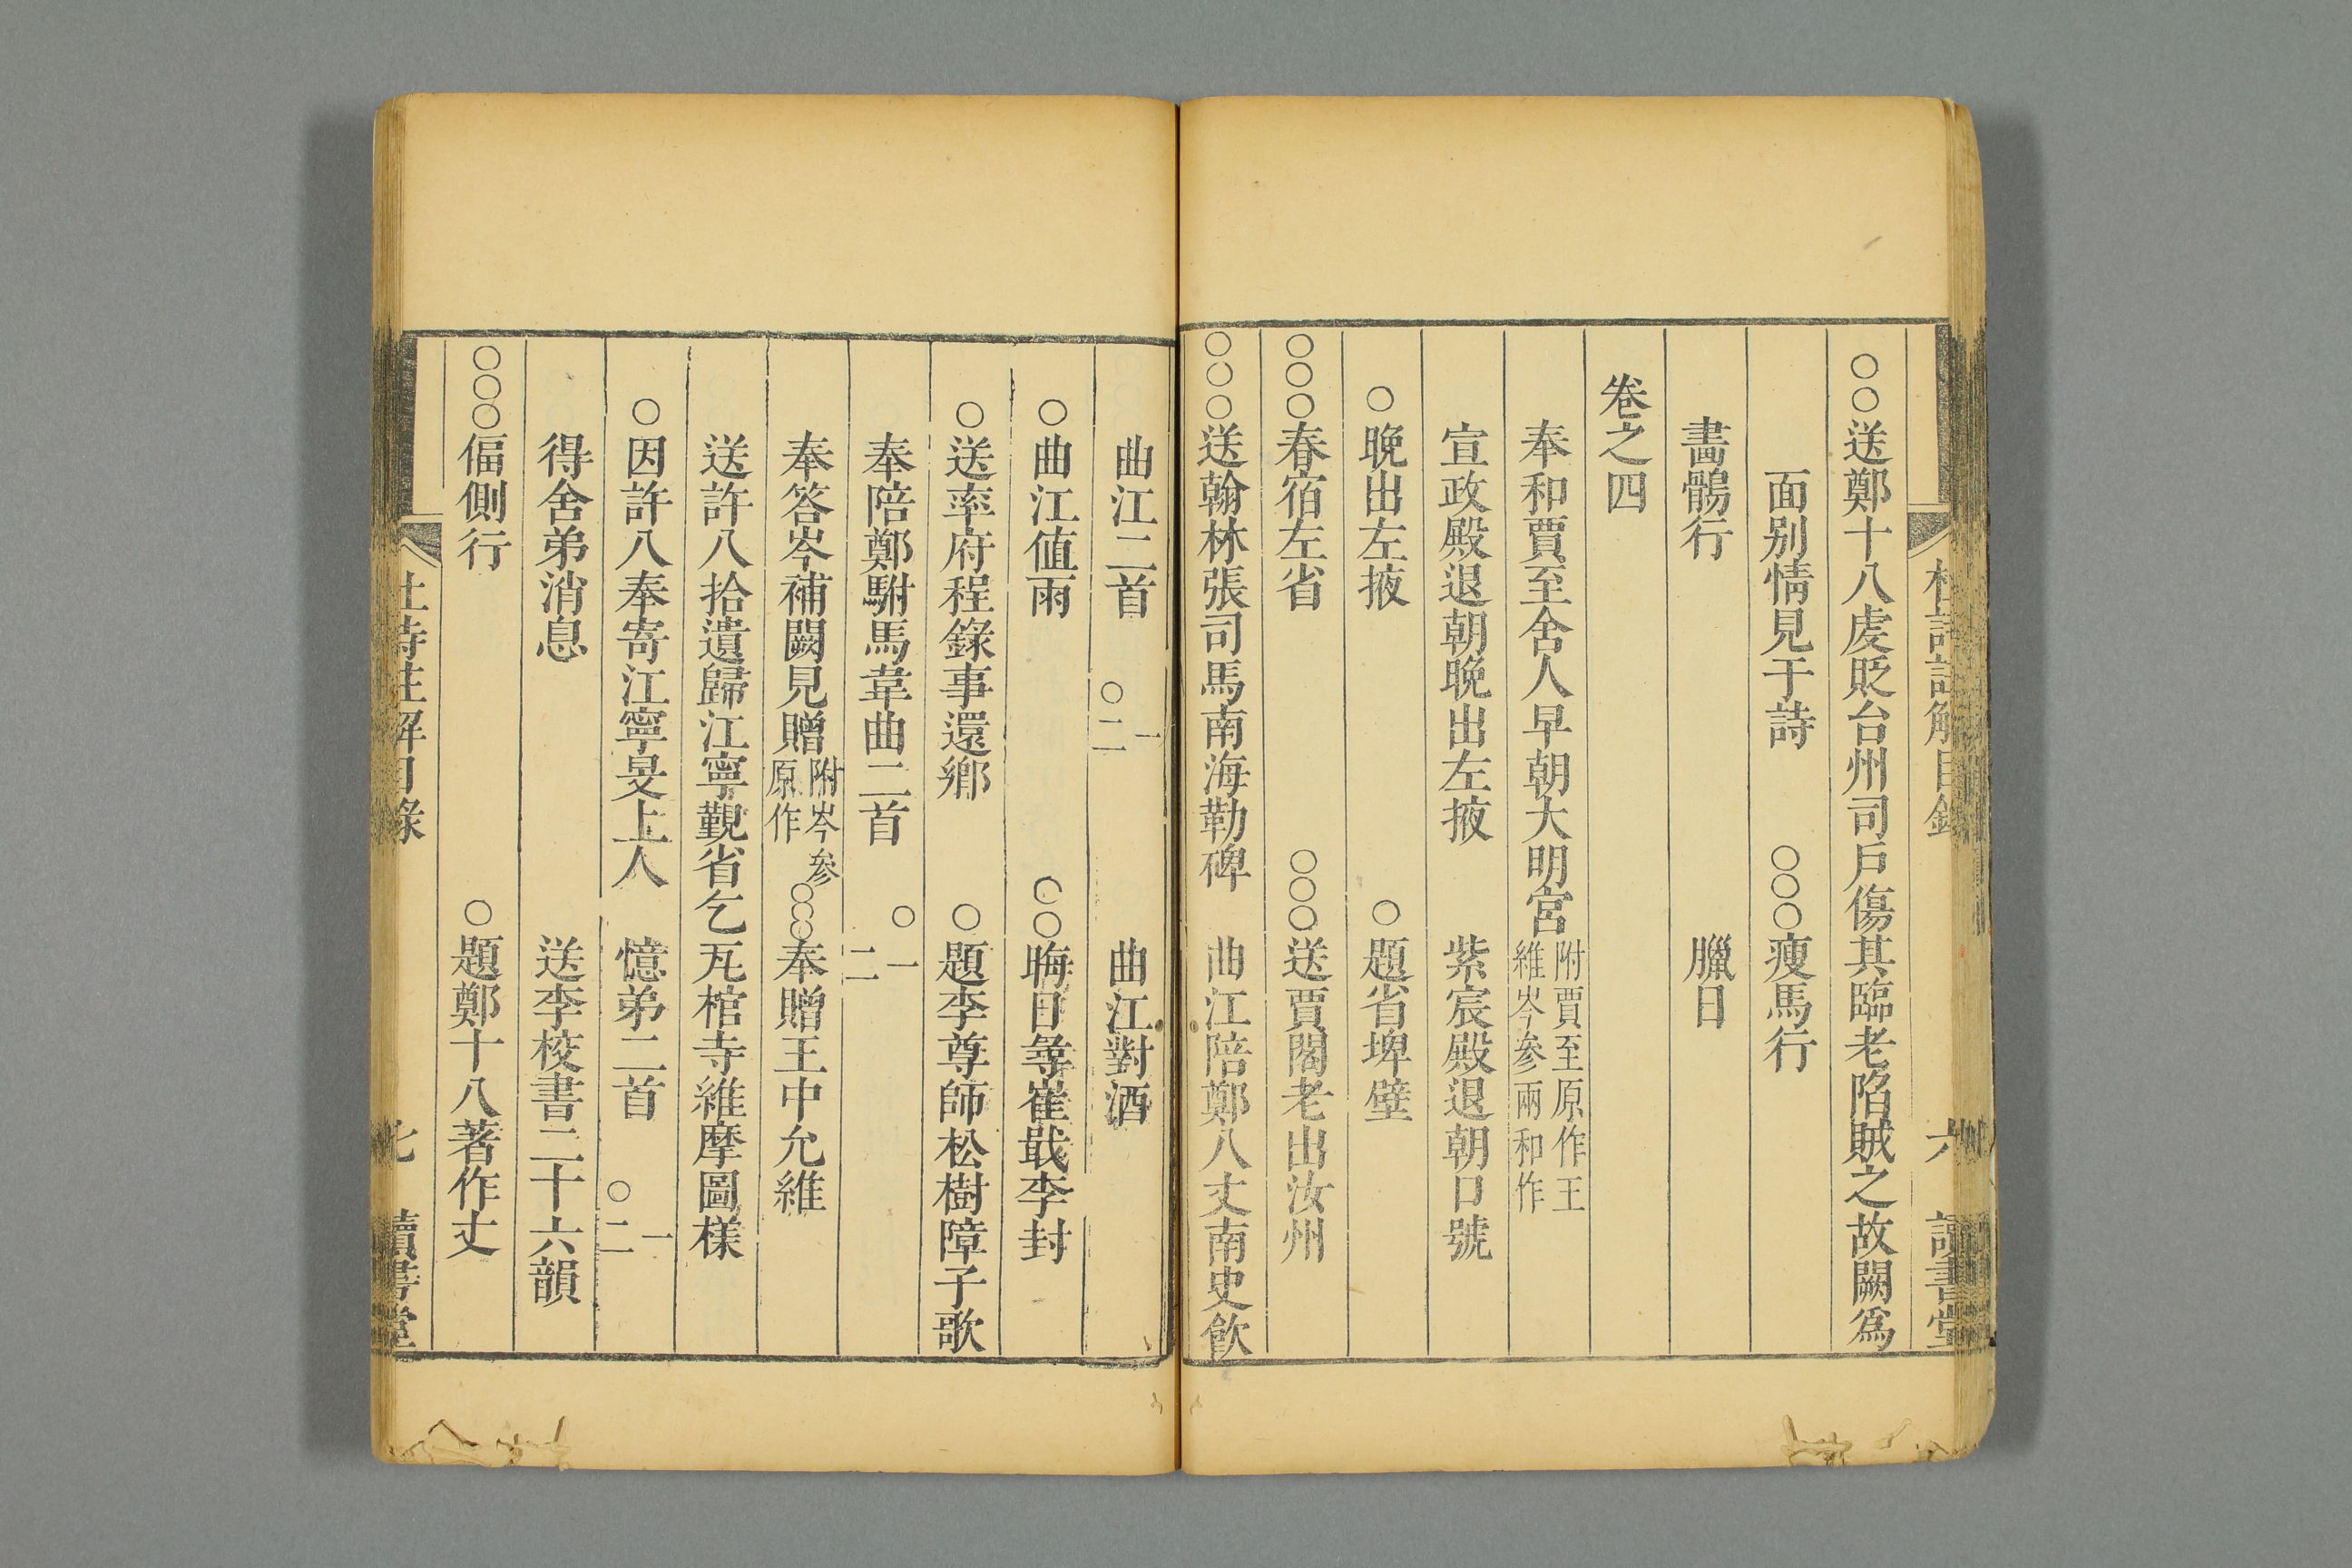 杜詩註解目錄 六 讀書堂
○○送鄭十八虔貶台州司戶傷其臨老陷賊之故闕爲
面别情見于詩 ○○○瘦馬行
畵鶻行 臘日
卷之四
奉和賈至舍人早朝大明宮 附賈至原作王維岑參兩和作
宣政殿退朝晚出左掖 紫宸殿退朝口號
○晚出左掖 ○題省埤壁
○○○春宿左省 ○○○送賈閣老出汝州
○○○送翰林張司馬南海勒碑 曲江陪鄭八丈南史飮
曲江二首 一○二 曲江對酒
○曲江値雨 ○○晦日尋崔戢李封
○送率府程錄事還鄉 ○題李尊師松樹障子歌
奉陪鄭駙馬韋曲二首 ○一二
奉答岑補闕見贈 附岑參原作 ○○○奉贈王中允維
送許八拾遺歸江寧覲省乞瓦棺寺維摩圖樣
○因許八奉寄江寧旻上人 憶弟二首 一○二
得舍弟消息 送李校書二十六韻
○○○偪側行 ○題鄭十八著作丈
杜詩註解目錄 七 讀書堂